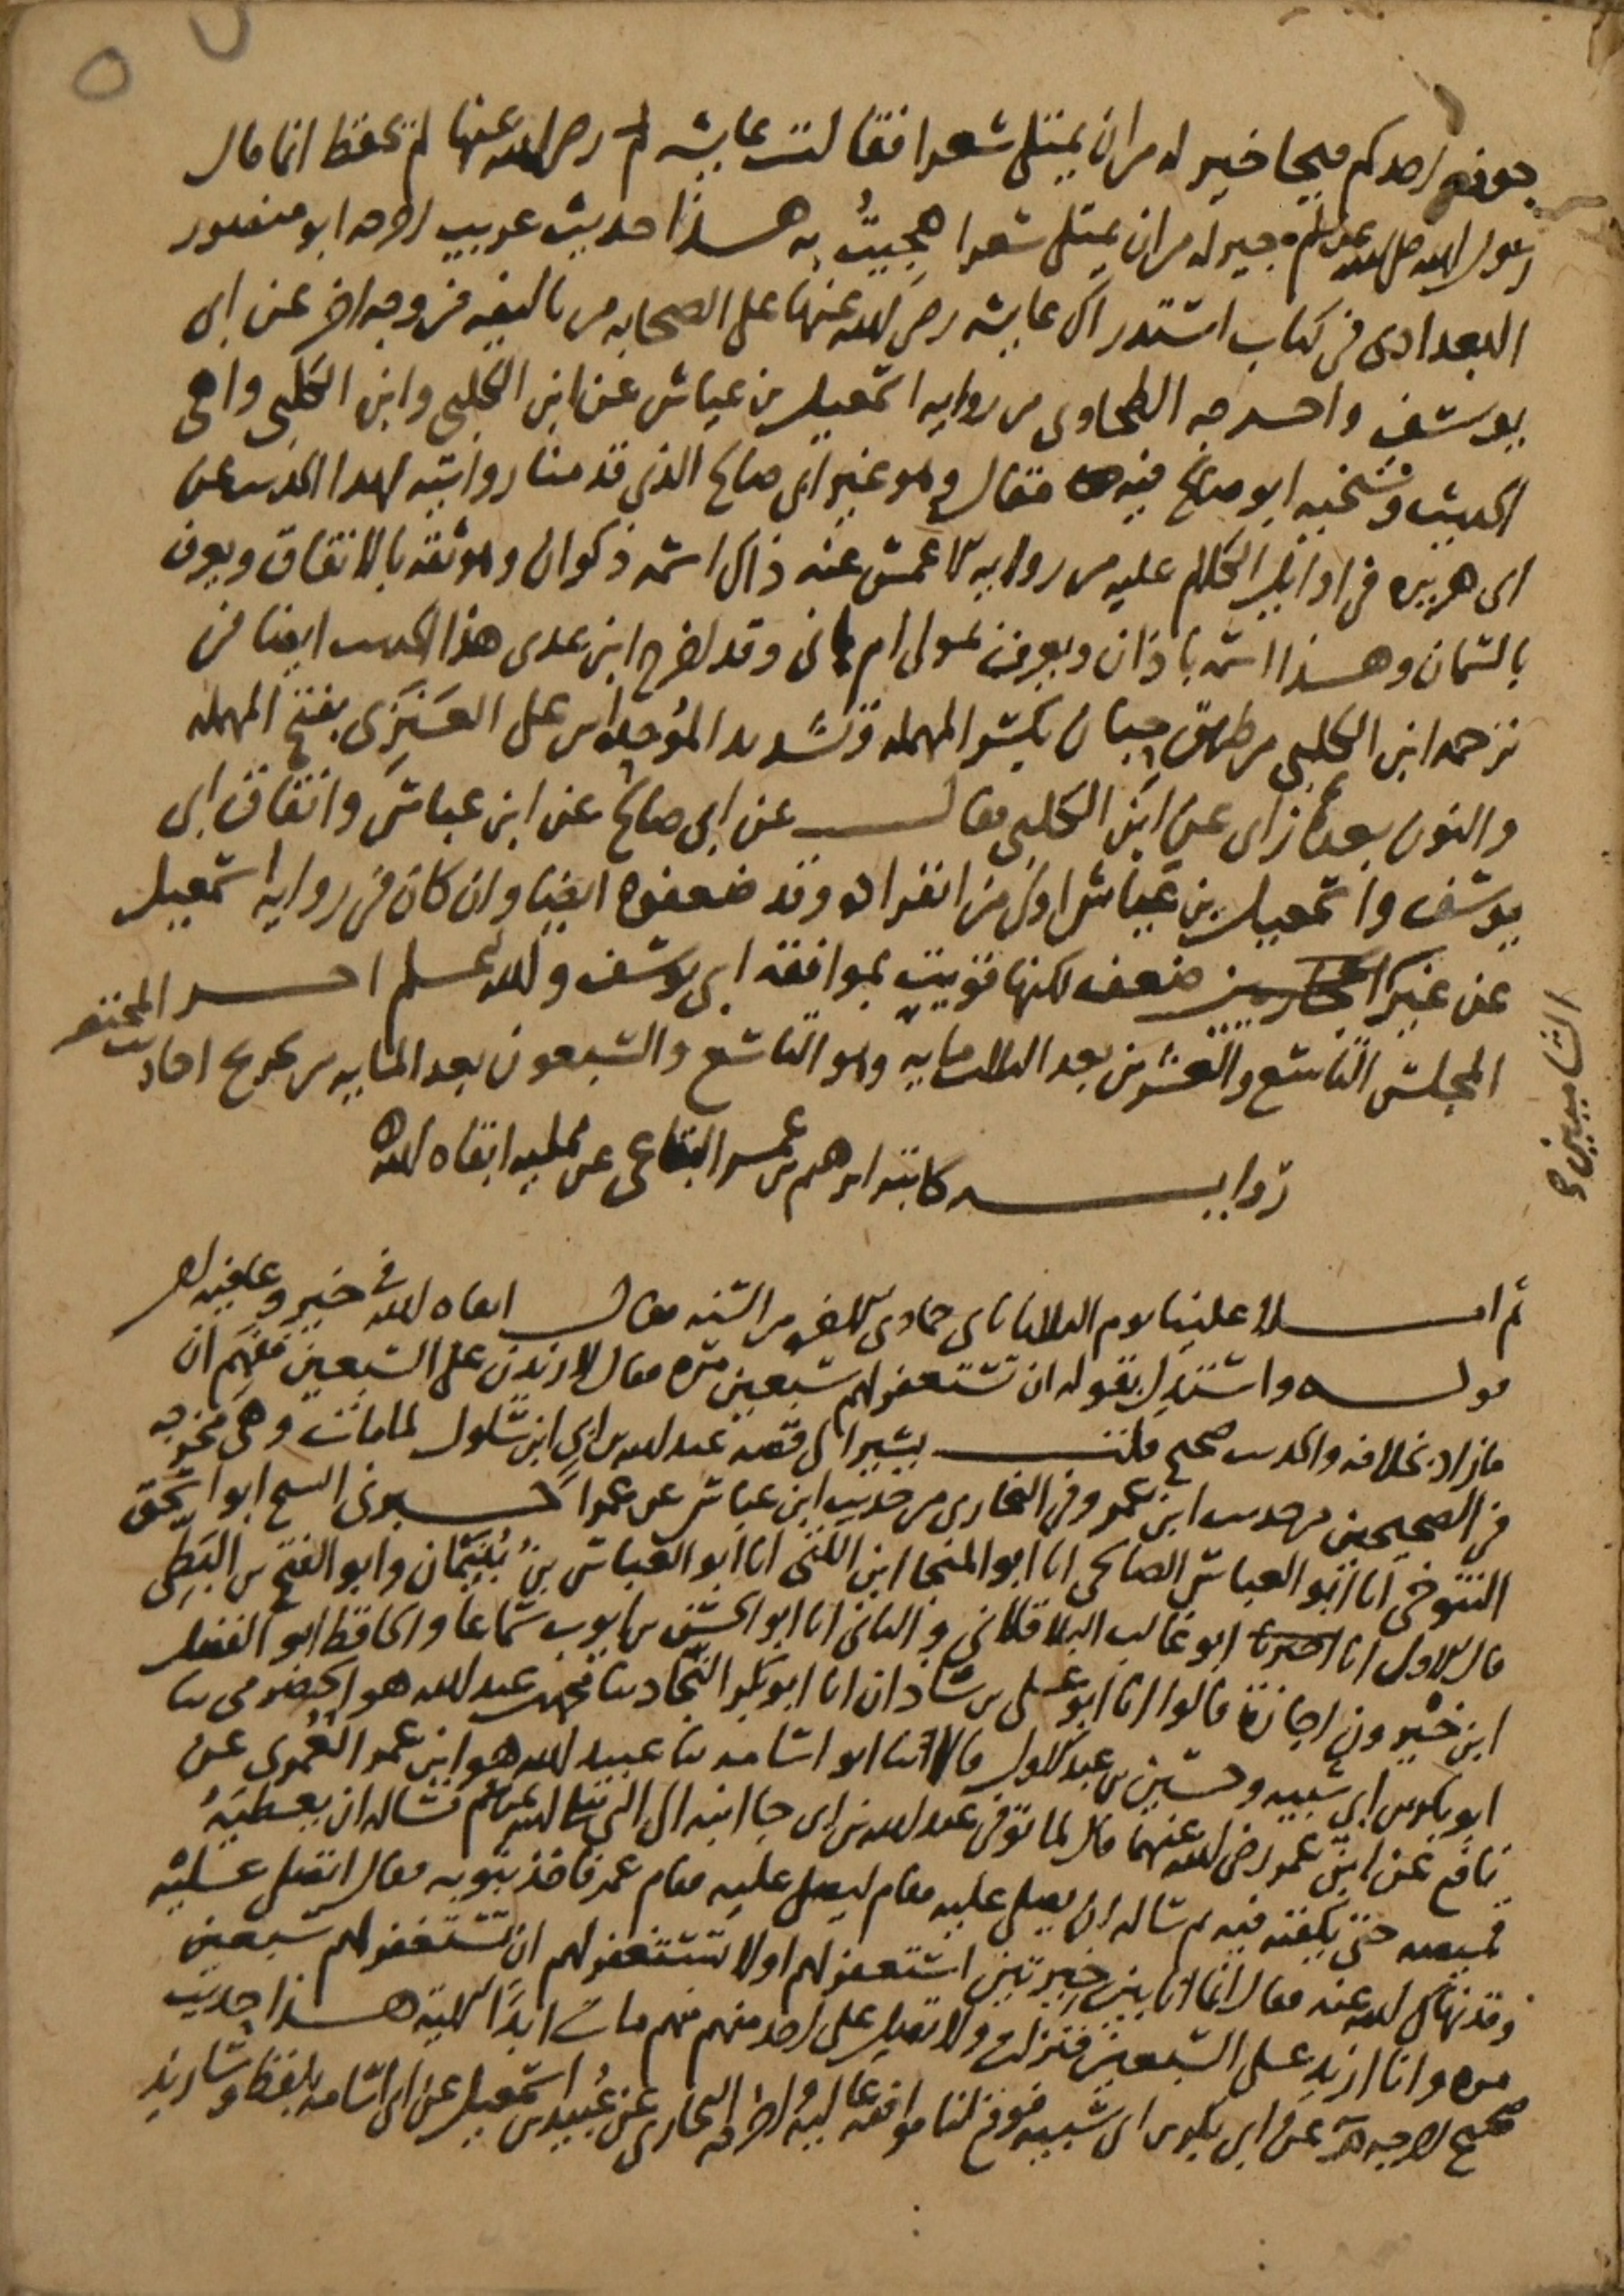 جوف احدكم قيحا خير له من ان يمتلى شعرا فقالت عايشه رضى الله عنها لم يحفظ انما قال
رسول الله صلى الله عليه وسلم خير له من ان يمتلى شعرا هجيتُ به هــذا حديث غريب اخرجه ابو منصور
البغدادى فى كتاب استدراك عايشه رضى الله عنها على الصحابه من تاليفه من وجه اخر عن ابى
يوسف واخــرجه الطحاوى من روايه اسمعيل بن عياش عن ابن الكلبى وابن الكلبى واهى
الحديث وشيخه ابو صالح فيه مقال وهو غير ابى صالح الذى قدمنا روايته لهذا الحديث عن
ابى هريره فى اوايل الكلام عليه من روايه الاعمش عنه ذاك اسمه ذكوان وهو ثقه بالاتفاق ويعرف
بالسمان وهــذا اسمه باذان ويعرف بمولى ام هانى وقد اخرج ابن عدى هذا الحديث ايضا فى
ترجمه ابن الكلبى من طريق حِبّان بكسر المهمله وتشديد الموحده بن على العَنَزى بفتح المهمله
والنون بعدها زاى عن ابن الكلبى فقالــــ عن ابى صالح عن ابن عباس واتفاق ابى
يوسف واسمعيل بن عياش اولى من انفراده وقد ضعفوه ايضا وان كان فى روايه اسمعيل
عن غير ضعف لكنها قويت بموافقه ابى يوسف والله اعــلم اخــر
المجلس التاسع والعشرين بعد الثلثمايه وهو التاسع والسبعون بعد المايه من تخريج احاديث المختصر
الشاميين
روايـــــه كاتبه ابرهيم بن عمــر البقاعى عن ممليه ابقاه الله
ثم امــــلا علينا يوم الثلاثا جمادى الاخره من السنه فقالــــ ابقاه الله فى خير وعافيه
قولــــه واستدل بقوله ان تستغفر لهم سبعين مره فقال لازيدن على السبعين ففهم ان
ما زاد بخلافه والحديث صحيح قلتــــ يشير الى قصه عبد الله بن ابى ابن سلول لما مات وهى مخرجه
فى الصحيحين من حديث ابن عمر وفى البخارى من حديث ابن عباس عن عمر اخــبرنى الشيخ ابو اسحق
التنوخى انا ابو العباس الصالحى انا ابو المنجا ابن اللتى انا ابو العباس بن بُنَيمان وابو الفتح بن البَطِى
قال الاول انا ابو غالب الباقلانى والثانى انا ابو الحسن بن ايوب سماعا والحافظ ابو الفضل
ابن خيرون اجازة قالوا انا ابو على بن شاذان انا ابو بكر النجاد ثنا محمد بن عبد الله هو الحضرمى ثنا
ابو بكر بن ابى شيبه وحسين بن عبد الاول قالا ثنا ابو اسامه ثنا عبيد الله هو ابن عمر العُمرى عن
نافع عن ابن عمر رضى الله عنهما قال لما توفى عبد الله بن ابى جا ابنه الى النبى صلى الله عليه وسلم فساله ان يعطيَهُ
قميصه حتى يكفنه فيه ثم ساله ان يصلى عليه فقام ليصلى عليه فقام عمر فاخذ بثوبه فقال اتصلى عليْه
وقد نهاك الله عنه فقال انما انا بين خيرتين استغفر لهم او لا تستغفر لهم ان تستغفر لهم سبعين
مره وانا ازيد على السبعين فنزلت ولا تصل على احد منهم مات ابدًا الايه هــذا حديث
صحيح اخرجه عن ابى بكر بن ابى شيبه فوقع لنا موافقه عاليه واخرجه البخارى عن عُبيد بن اسمعيل عن ابى اسامه بلفظ وسازيد